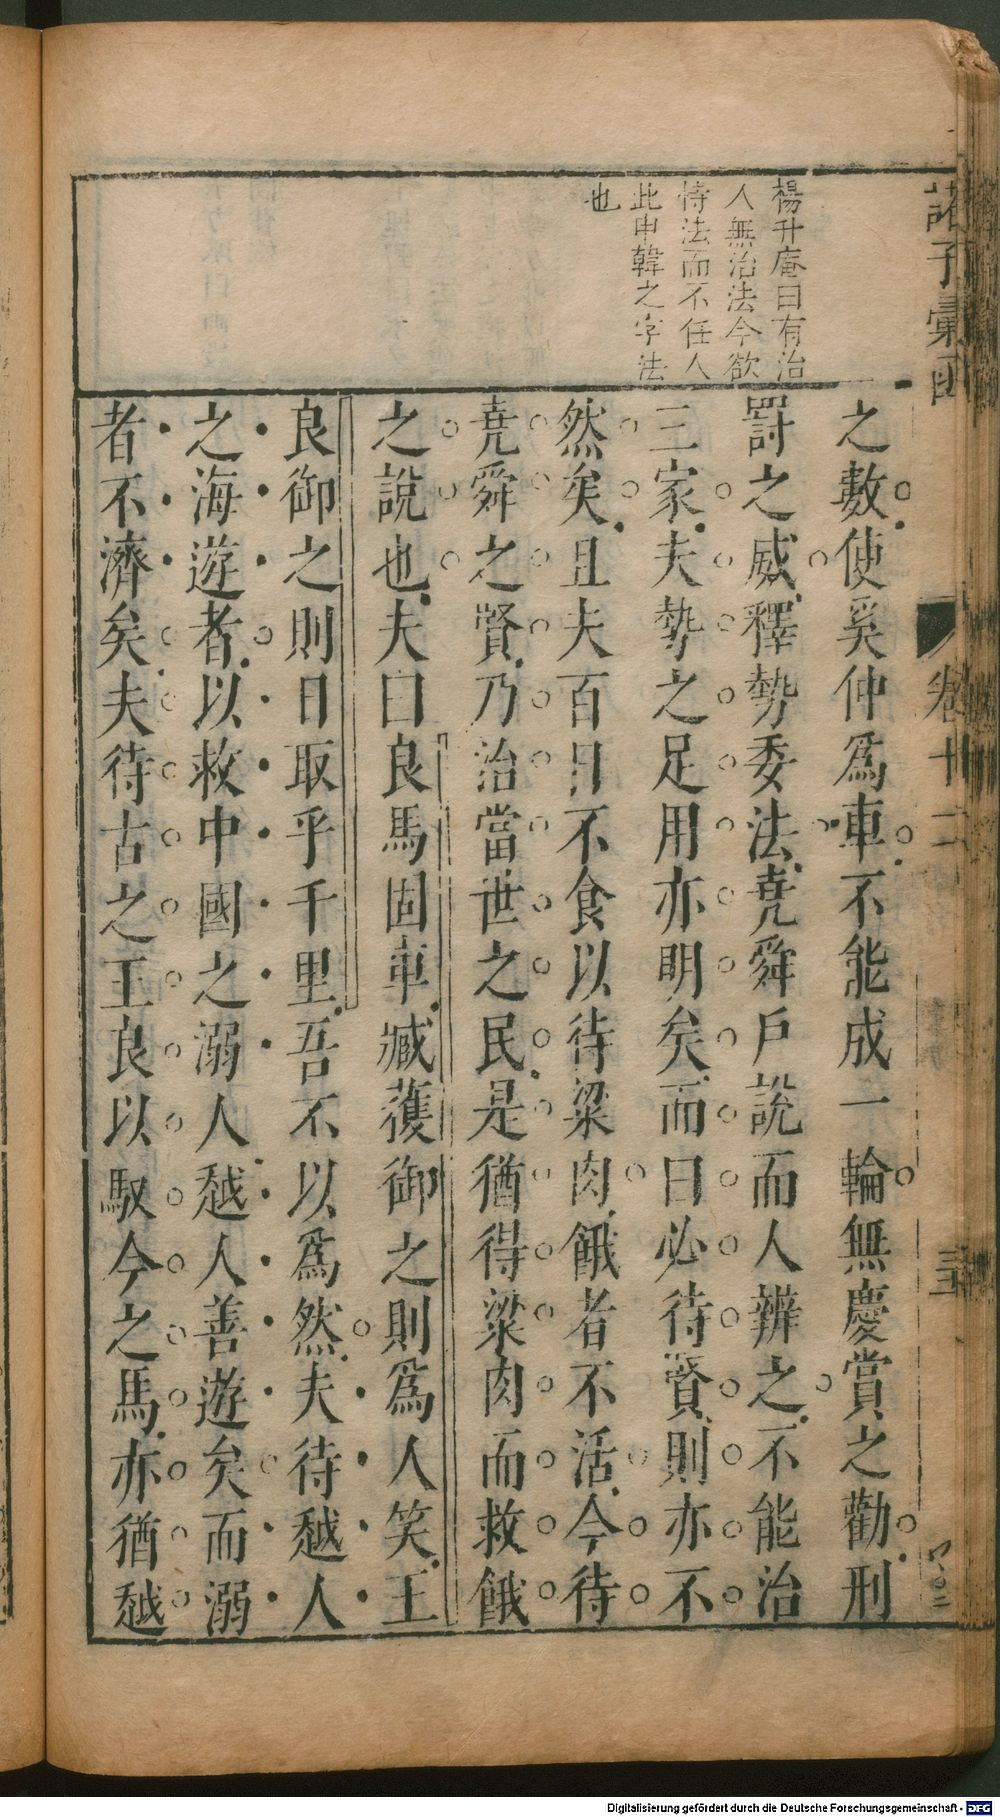 諸子彙函
卷十二
三
楊升庵曰有治
人無治法今欲
恃法而不任人
此申韓之字法
也
之數使奚仲為車不能成一輪無慶賞之勸刑
罰之威釋勢委法堯舜戶說而人辨之不能治
三家夫勢之足用亦明矣而曰必待賢則亦不
然矣且夫百日不食以待粱肉餓者不活今待
堯舜之賢乃治當世之民是猶得粱肉而救餓
之說也夫曰良馬固車臧獲御之則為人笑王
良御之則日取乎千里吾不以為然夫待越人
之海遊者以救中國之溺人越人善遊矣而溺
者不濟矣夫待古之王良以馭今之馬亦猶越
Digitalisierung gefördert durch die Deutsche Forschungsgemeinschaft - DFG